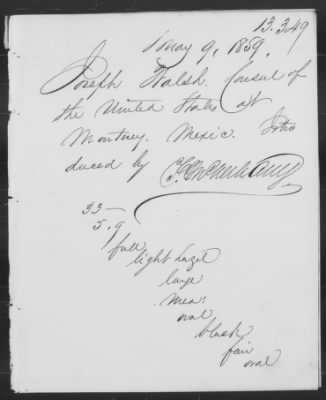 13.349
May 9, 1859.
Joseph Walsh. Consul of
the United States at
Monterey. Mexic. Intro
duced by
33 –
5. 9
full
light hazel
large
mea:
oval
black
fair
oval